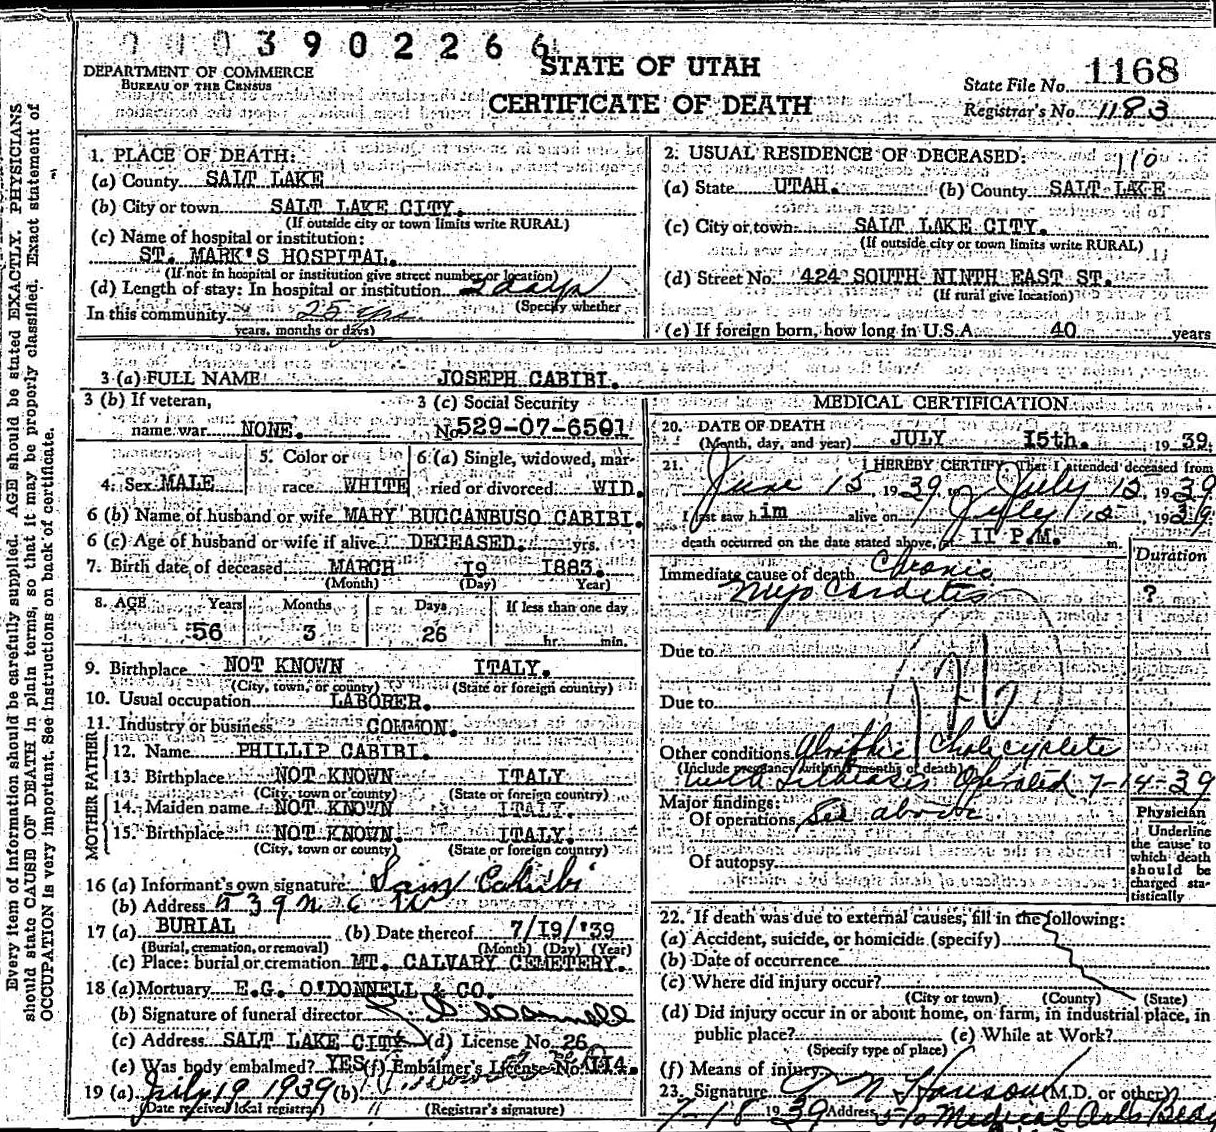 3902266
STATE OF UTAH
CERTIFICATE OF DEATH
DEPARTMENT OF COMMERCE
BUREAU OF THE CENSUS
State File No. 1168
Registrar's No. 1183
Every item of information should be carefully supplied. AGE should be stated EXACTLY. PHYSICIANS
should state CAUSE OF DEATH in plain terms, so that it may be properly classified. Exact statement of
OCCUPATION is very important. See instructions on back of certificate.
1. PLACE OF DEATH:
(a) County SALT LAKE
(b) City or town SALT LAKE CITY.
(If outside city or town limits write RURAL)
(c) Name of hospital or institution:
ST. MARK'S HOSPITAL.
(If not in hospital or institution give street number or location)
(d) Length of stay: In hospital or institution 2 days
(Specify whether
In this community 25 yrs
years, months or days)
2. USUAL RESIDENCE OF DECEASED: 110
(a) State UTAH. (b) County SALT LAKE
(c) City or town SALT LAKE CITY.
(If outside city or town limits write RURAL)
(d) Street No. 424 SOUTH NINTH EAST ST.
(If rural give location)
(e) If foreign born, how long in U.S.A. 40 years
3 (a) FULL NAME JOSEPH CABIBI.
3 (b) If veteran, 3 (c) Social Security
name war NONE. No 529-07-6501
4. Sex MALE 5. Color or race WHITE 6 (a) Single, widowed, married or divorced WID.
6 (b) Name of husband or wife MARY BUCCANBUSO CABIBI.
6 (c) Age of husband or wife if alive DECEASED. yrs.
7. Birth date of deceased MARCH 19 1883.
(Month) (Day) Year)
8. AGE Years Months Days If less than one day
56 3 26 hr. min.
9. Birthplace NOT KNOWN ITALY.
(City, town, or county) (State or foreign country)
10. Usual occupation LABORER.
11. Industry or business COMMON.
FATHER
12. Name PHILLIP CABIBI.
13. Birthplace NOT KNOWN ITALY
(City, town or county) (State or foreign country)
MOTHER
14. Maiden name NOT KNOWN ITALY.
15. Birthplace NOT KNOWN ITALY.
(City, town or county) (State or foreign country)
16 (a) Informant's own signature Sam Cabibi
(b) Address 539 N
17 (a) BURIAL (b) Date thereof 7/19/'39
(Burial, cremation, or removal) (Month) (Day) (Year)
(c) Place: burial or cremation MT. CALVARY CEMETERY.
18 (a) Mortuary E.G. O'DONNELL & CO.
(b) Signature of funeral director O'Donnell
(c) Address SALT LAKE CITY (d) License No. 26
(e) Was body embalmed? YES (f) Embalmer's License No. 114.
19 (a) July 19 1939 (b)
(Date received local registrar) (Registrar's signature)
MEDICAL CERTIFICATION
20. DATE OF DEATH
(Month, day, and year) JULY 15th. 1939.
21. I HEREBY CERTIFY, That I attended deceased from
June 15, 1939, to July 15, 1939
I last saw him alive on July 15, 1939
death occurred on the date stated above, at 11 P.M. m.
Duration
Immediate cause of death Chronic
Myocarditis ?
Due to
Due to
Other conditions Cholecystitis
(Include pregnancy within 3 months of death)
with Lithiasis Operated 7-14-39
Major findings:
Of operations See above
Of autopsy
Physician
Underline
the cause to
which death
should be
charged sta-
tistically
22. If death was due to external causes, fill in the following:
(a) Accident, suicide, or homicide (specify)
(b) Date of occurrence
(c) Where did injury occur?
(City or town) (County) (State)
(d) Did injury occur in or about home, on farm, in industrial place, in
public place? (e) While at Work?
(Specify type of place)
(f) Means of injury
23. Signature N Hanson (M.D. or other)
7-18 1939 Address 510 Medical Arts Bldg